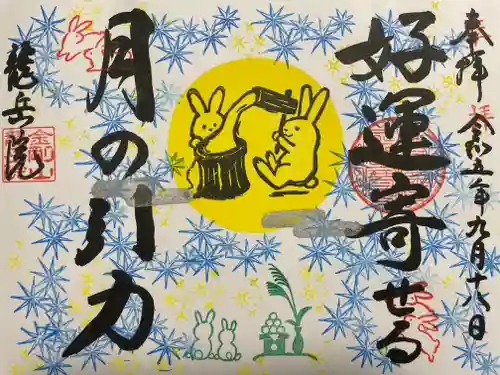 奉拝 令和五年九月十八日
好運寄せる
月の引力
龍岳院